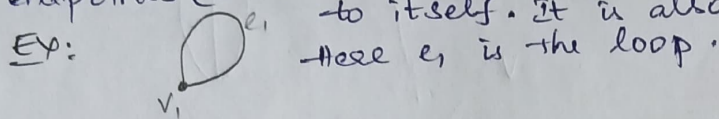 to itself. It is also
Ex: e₁
Here e₁ is the loop.
v₁